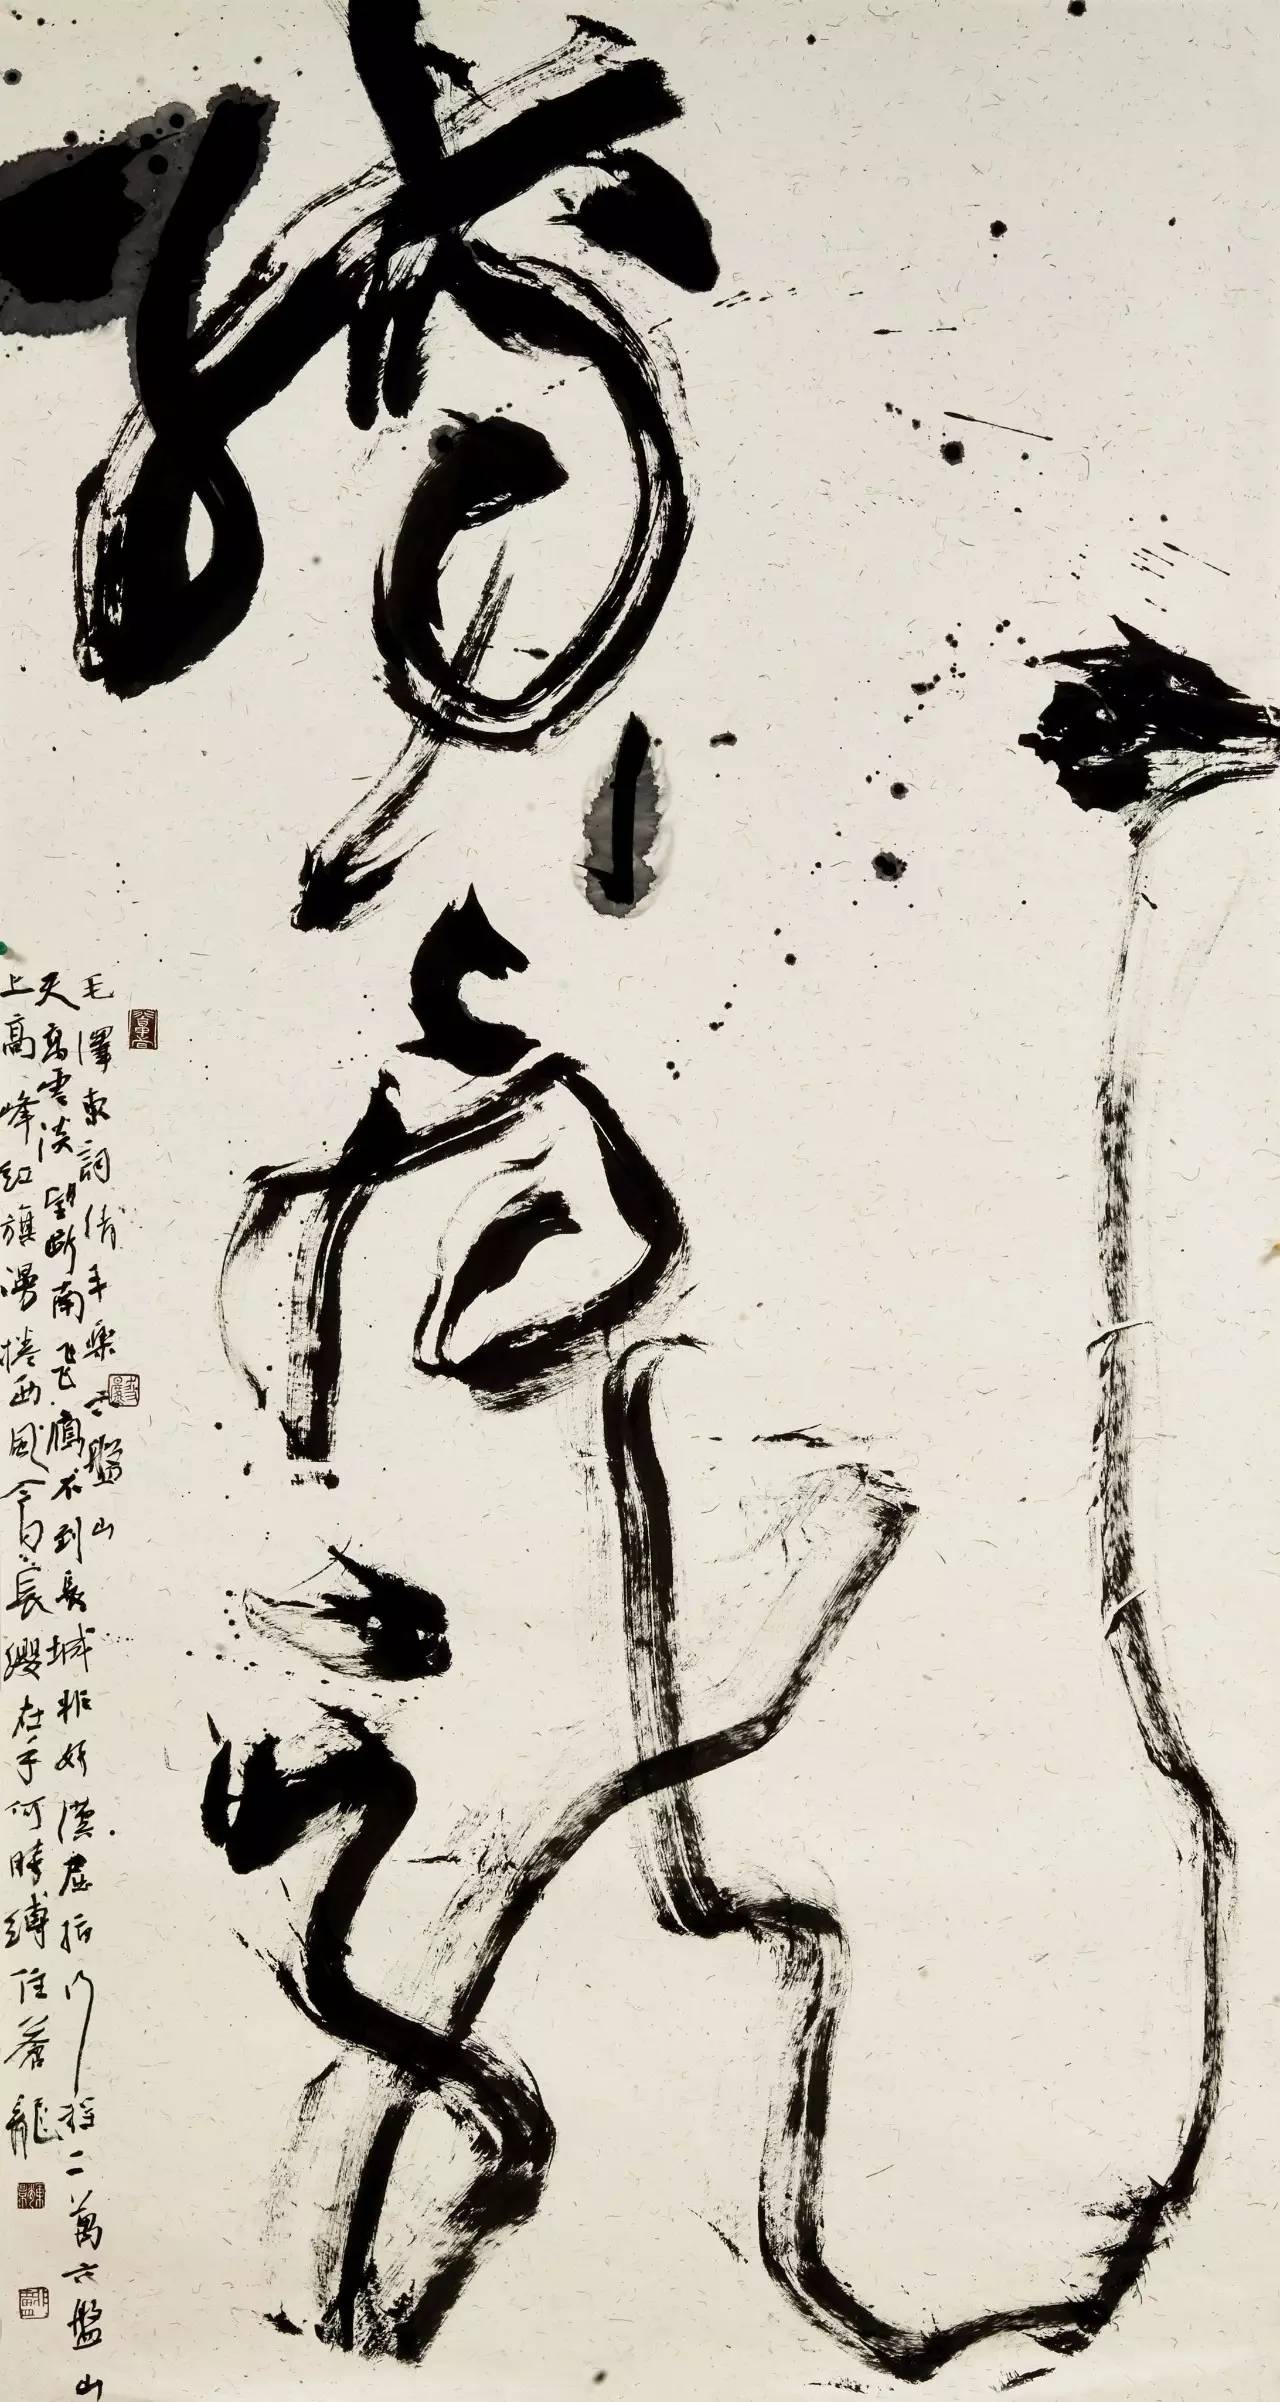 縛蒼龍
毛澤東詞清平樂六盤山
天高雲淡望斷南飛鴈不到長城非好漢屈指行程二萬六盤山
上高峰紅旗漫捲西風今日長纓在手何時縛住蒼龍